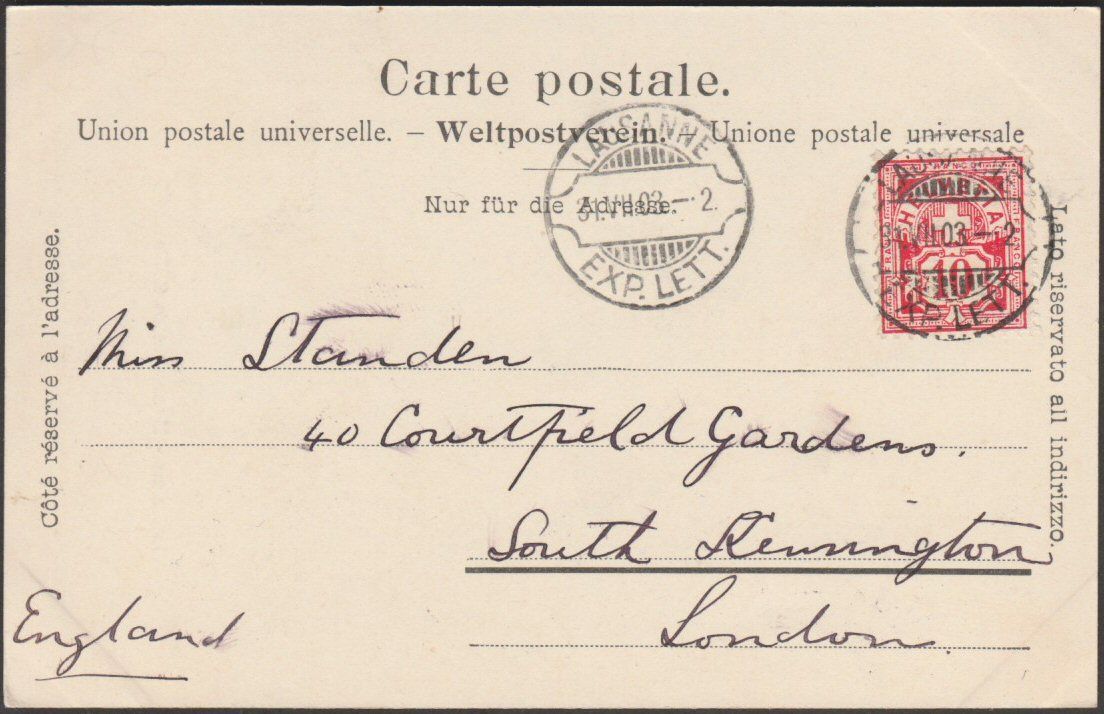 Carte postale.
Union postale universelle. – Weltpostverein. – Unione postale universale
Nur für die Adresse.
LAUSANNE
31.VII.03.–2.
EXP. LETT.
HELVETIA
FRANCO
10
VII.03–2
LETT.
Côté réservé à l'adresse.
Lato riservato all indirizzo.
Miss Standen
40 Courtfield Gardens.
South Kennington
London
England